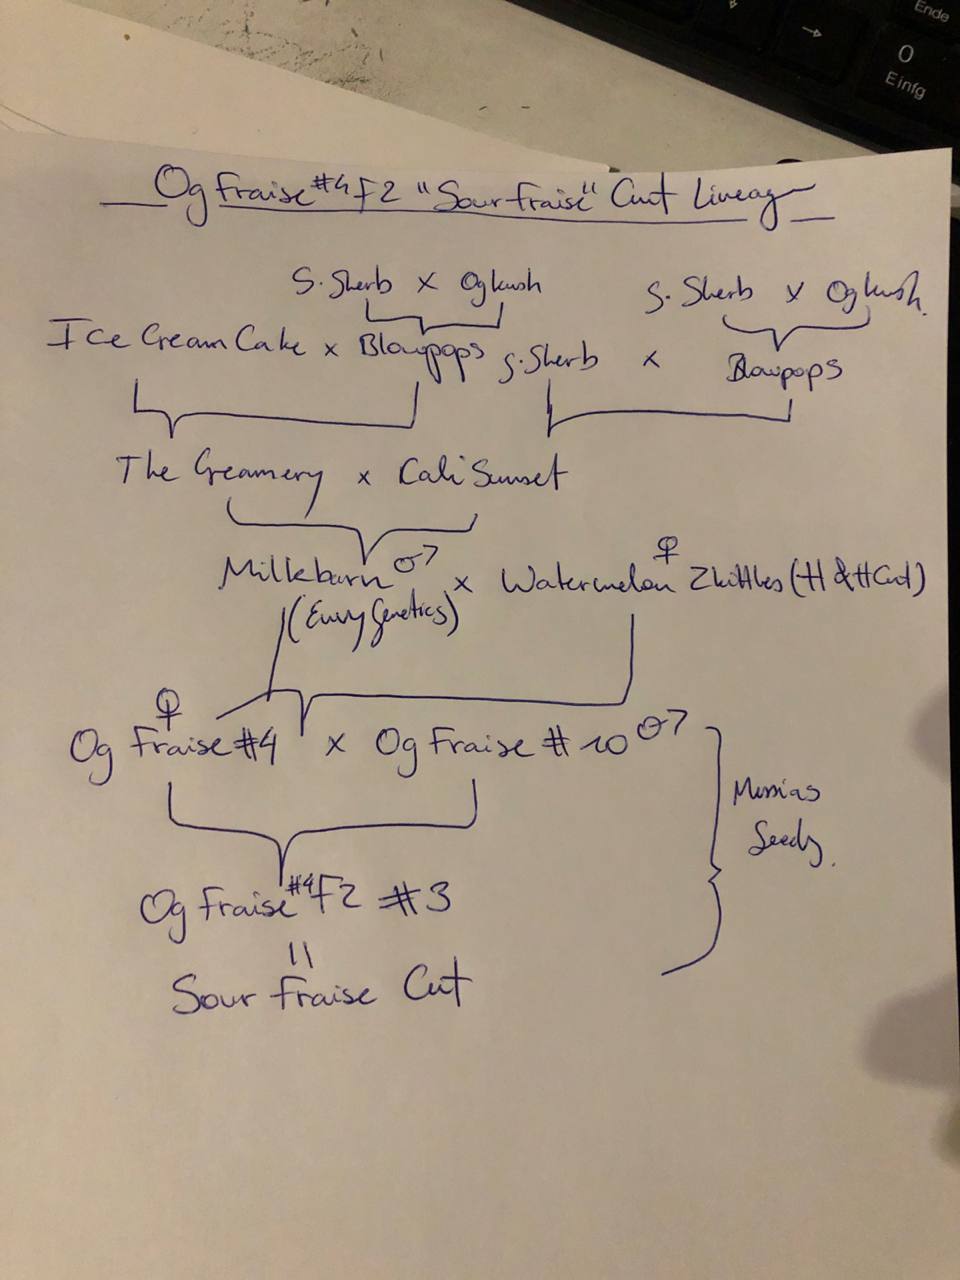 Og Fraise #4 F2 "Sour Fraise" Cut Lineag
S. Sherb x Og kush
S. Sherb x Og kush.
Ice Cream Cake x Blowpops
S. Sherb x Blowpops
The Creamery x Cali Sunset
Milkbarn ♂ x Watermelon ♀ Zkittles (H & H Cut)
(Envy Genetics)
Og Fraise #4 ♀ x Og Fraise # 10 ♂
Messias
Seeds.
Og Fraise #4 F2 #3
=
Sour Fraise Cut
Ende
0
Einfg